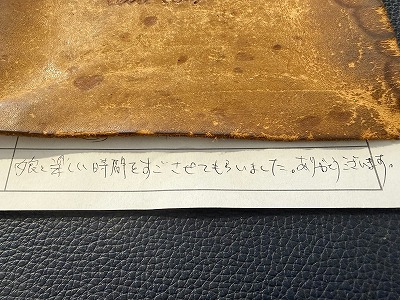 娘と楽しい時間をすごさせてもらいました。ありがとうございます。